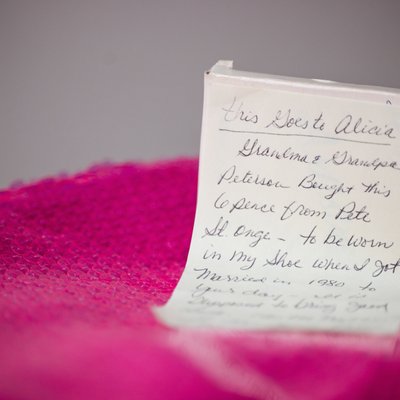 this Goes to Alicia
Grandma & Grandpa
Peterson Bought this
6 pence from Pete
St. Onge - to be worn
in my Shoe when I got
Married in 1980 to
your day -
supposed to bring good